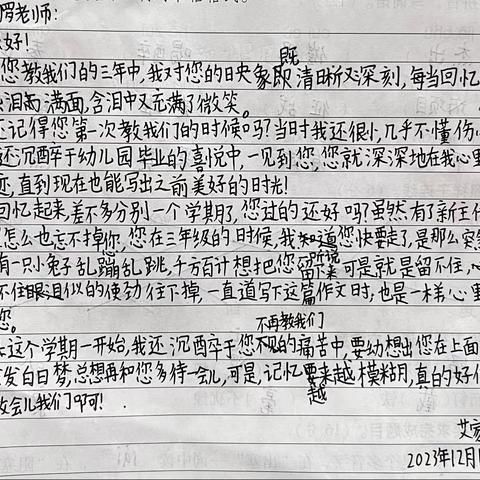 罗老师:
好!
您教我们的三年中,我对您的印象既清晰又深刻,每当回忆
泪流满面,含泪中又充满了微笑。
还记得您第一次教我们的时候吗?当时我还很小,几乎不懂伤心
还沉醉于幼儿园毕业的喜悦中,一见到您,您就深深地在我心里
,直到现在也能写出之前美好的时光!
回忆起来,差不多分别一个学期了,您过的还好吗?虽然有了新主任
怎么也忘不掉您,您在三年级的时候,我听说您快要走了,是那么突然
有一只小兔子乱蹦乱跳,千方百计想把您留下来可是就是留不住,心
不住眼退似的使劲往下掉,一直道写下这篇作文时,也是一样心里
您。
这个学期一开始,我还沉醉于您不再教我们的痛苦中,要幻想出您在上面
发白日梦,总想再和您多待一会儿,可是,记忆越来越模糊,真的好
教会儿我们啊!
艾家
2023年12月1